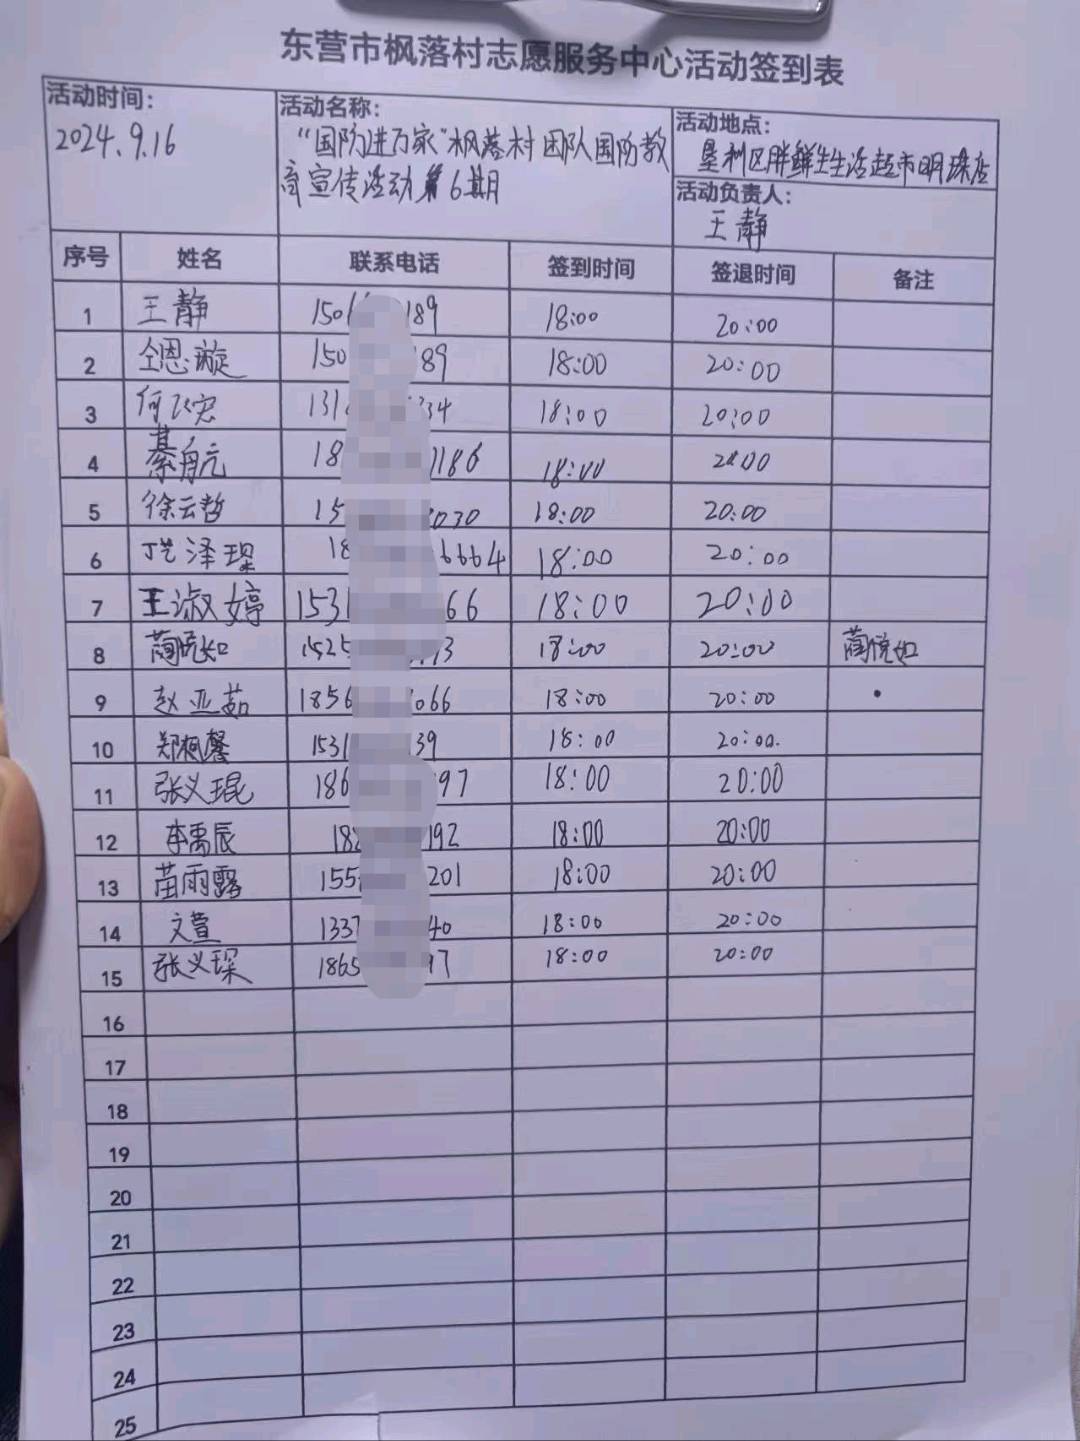 东营市枫落村志愿服务中心活动签到表
活动时间：
2024.9.16
活动名称：
“国防进万家”枫落村团队国防教
育宣传活动第6期
活动地点：
垦利区胖鲜生生活超市明珠店
活动负责人：
王静
序号 姓名 联系电话 签到时间 签退时间 备注
1 王静 150 189 18:00 20:00
2 仝恩璇 150 189 18:00 20:00
3 何 宏 131 334 18:00 20:00
4 綦航 18 1186 18:00 20:00
5 徐云哲 15 030 18:00 20:00
6 泽琨 18 6664 18:00 20:00
7 王淑婷 1531 66 18:00 20:00
8 蔺悦如 1525 3 18:00 20:00 蔺悦如
9 赵亚茹 1856 066 18:00 20:00
10 郑桐馨 1531 39 18:00 20:00.
11 张义琨 186 97 18:00 20:00
12 李禹辰 18 192 18:00 20:00
13 苗雨露 155 201 18:00 20:00
14 文萱 1337 40 18:00 20:00
15 张义琛 1865 97 18:00 20:00
16
17
18
19
20
21
22
23
24
25